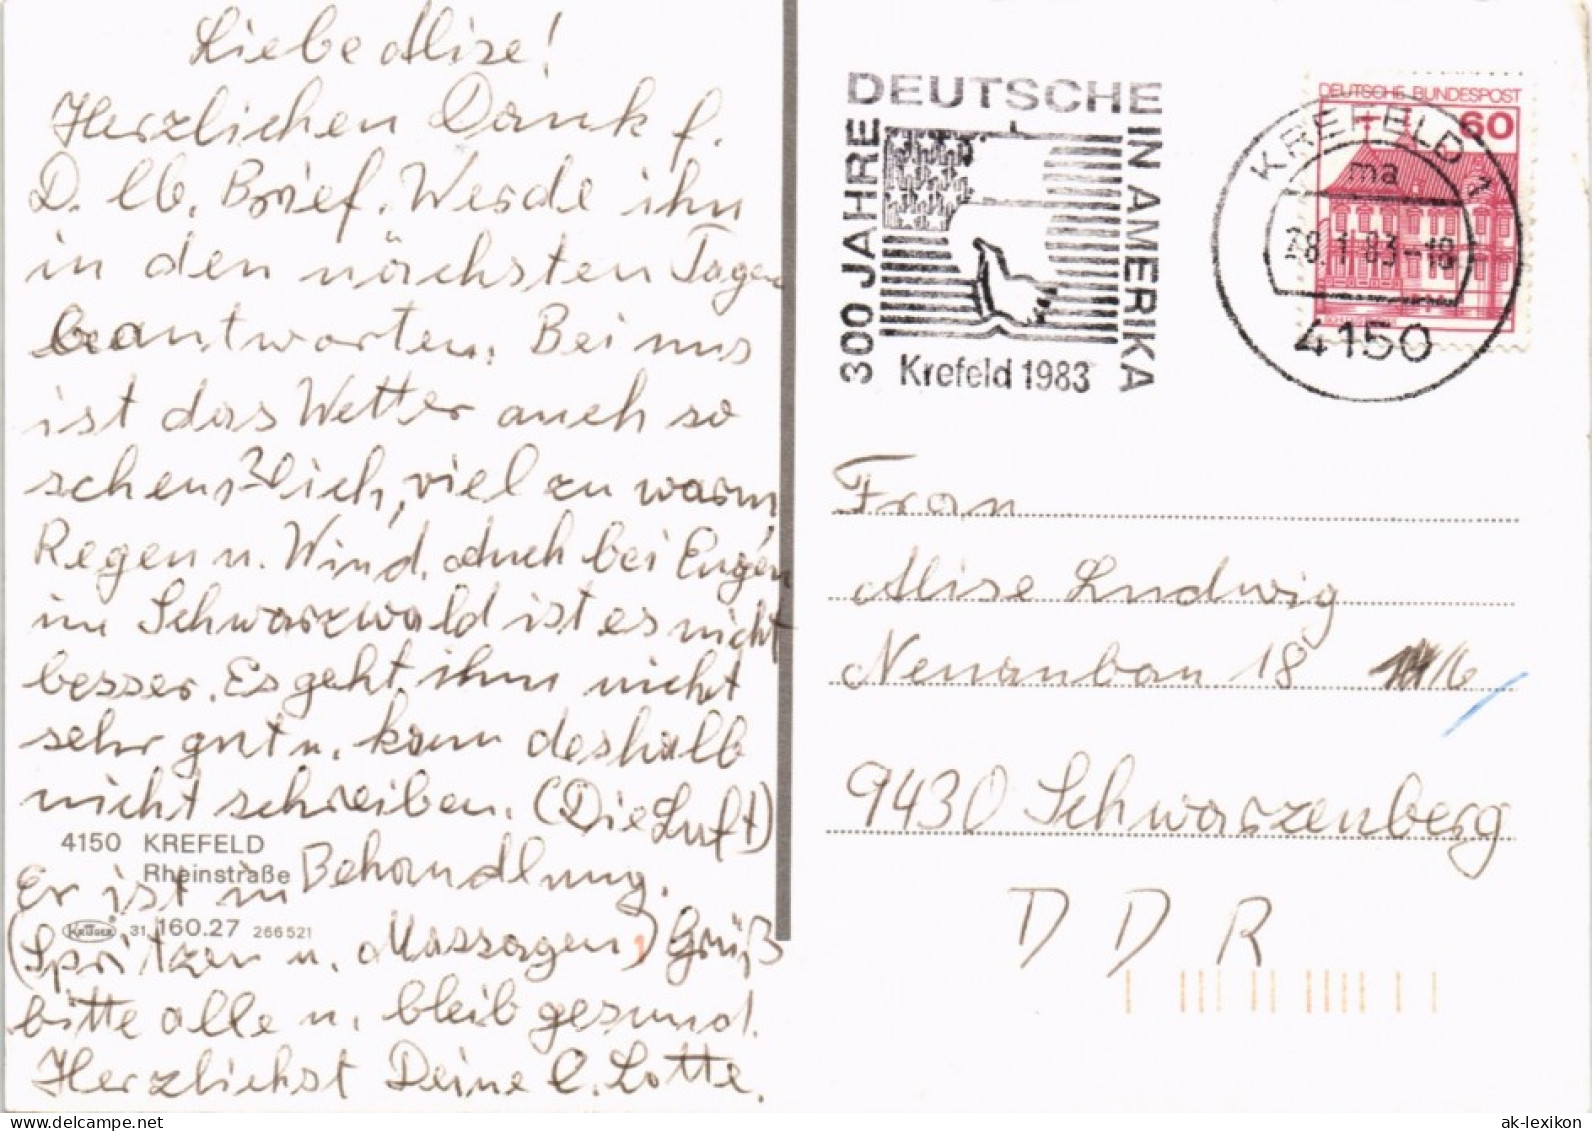 Liebe Alise!
Herzlichen Dank f.
D. lb. Brief. Werde ihn
in den nächsten Tagen
beantworten. Bei uns
ist das Wetter auch so
scheußlich, viel zu warm,
Regen u. Wind. Auch bei Eugen
im Schwarzwald ist es nicht
besser. Es geht ihm nicht
sehr gut u. kann deshalb
nicht schreiben. (Die Luft)
4150 KREFELD
Rheinstraße
Er ist in Behandlung.
KRÜGER 31 160.27 266521
(Spritzen u. Massagen) Grüß
bitte alle u. bleib gesund.
Herzlichst Deine l. Lotte.
300 JAHRE
DEUTSCHE
IN AMERIKA
Krefeld 1983
DEUTSCHE BUNDESPOST
60
KREFELD 1
ma
28.1.83-18
4150
Frau
Alise Ludwig
Neuanbau 18 16
9430 Schwarzenberg
DDR
ak-lexikon